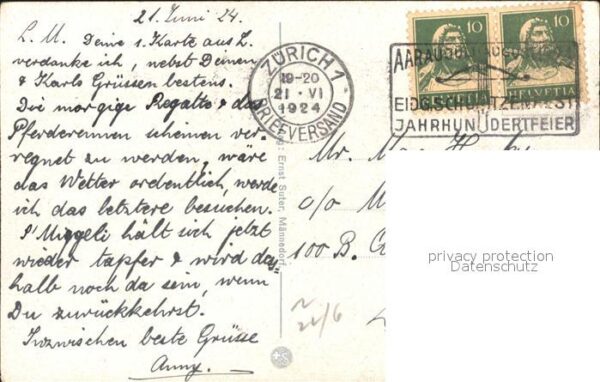 21. Juni 24.
L. M. Deine 1. Karte aus L.
verdanke ich, nebst Deinen
& Karls Grüssen bestens.
Die morgige Regatte & das
Pferderennen scheinen ver-
regnet zu werden, wäre
das Wetter ordentlich, werde
ich das letztere besuchen.
s'Miggeli hält sich jetzt
wieder tapfer & wird des
halb noch da sein, wenn
Du zurückkehrst.
Inzwischen beste Grüsse
Anny.
ZÜRICH 1
19-20
21 · VI
1924
BRIEFVERSAND
10 10
HELVETIA
AARAU
EIDG. SCHÜTZENFEST
JAHRHUNDERTFEIER
Ernst Suter, Männedorf
Mr.
c/o M
100 B.
21/6
privacy protection
Datenschutz